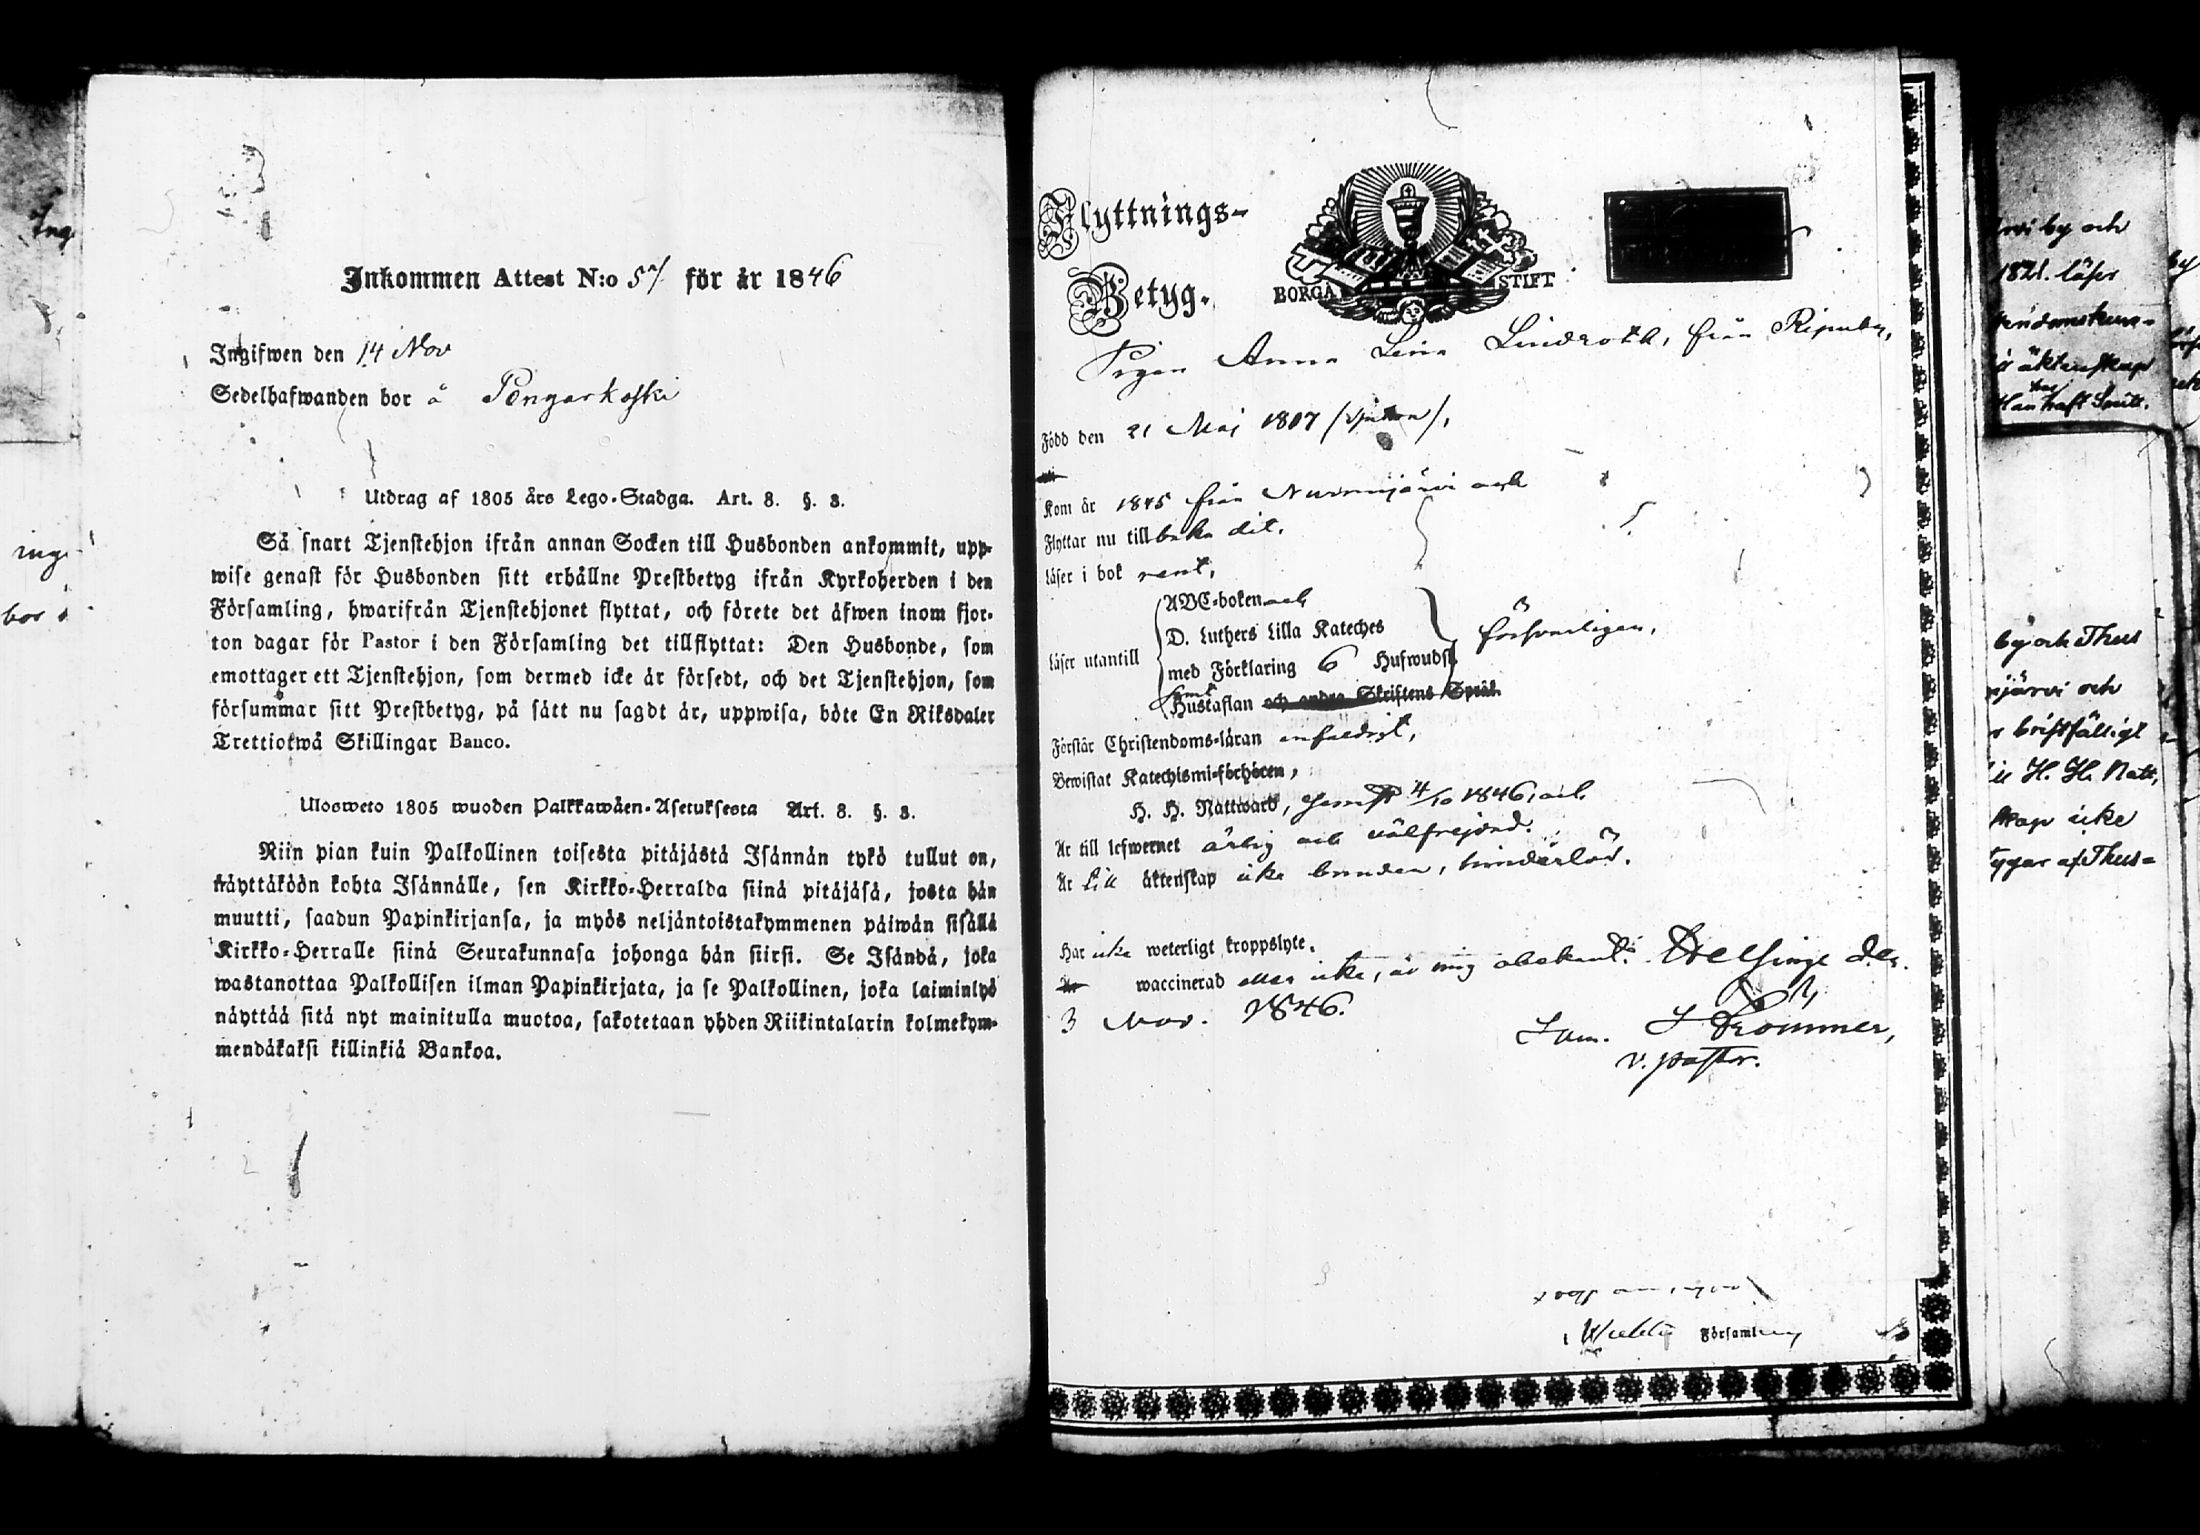 Inkommen Attest N:o 57 för år 1846
Ingifwen den 14 Nov
Sedelhafwanden bor å Pengarkoski
Utdrag af 1805 års Lego-Stadga. Art. 8. §. 3.
Så snart Tjenstehjon ifrån annan Socken till Husbonden ankommit, upp-
wise genast för Husbonden sitt erhållne Prestbetyg ifrån Kyrkoherden i den
Församling, hwarifrån Tjenstehjonet flyttat, och förete det äfwen inom fjor-
ton dagar för Pastor i den Församling det tillflyttat: Den Husbonde, som
emottager ett Tjenstehjon, som dermed icke är försedt, och det Tjenstehjon, som
försummar sitt Prestbetyg, på sätt nu sagdt är, uppwisa, böte En Riksdaler
Trettiotwå Skillingar Banco.
Ulosweto 1805 wuoden Palkkawäen-Asetuksesta Art. 8. §. 3.
Niin pian kuin Palkollinen toisesta pitäjästä Isännän tykö tullut on,
näyttäköön kohta Isännälle, sen Kirkko-Herralda siinä pitäjäsä, josta hän
muutti, saadun Papinkirjansa, ja myös neljäntoistakymmenen päiwän sisällä
Kirkko-Herralle siinä Seurakunnasa johonga hän siirsi. Se Isändä, joka
wastanottaa Palkollisen ilman Papinkirjata, ja se Palkollinen, joka laiminlyö
näyttää sitä nyt mainitulla muotoa, sakotetaan yhden Riikintalarin kolmekym-
mendäkaksi killinkiä Bankoa.
Flyttnings-
Betyg.
BORGÅ STIFT
Pigan Anna Lena Lindroth, från Ripuby,
Född den 21 Maj 1807
Kom år 1845 från Nurmijärvi och
Flyttar nu tillbaka dit.
Läser i bok rent,
Läser utantill
ABC-boken och
D. Luthers Lilla Kateches
med Förklaring 6 Hufwudst.
samt
Hustaflan och andra Skriftens Språk
försvarligen,
Förstår Christendoms-läran enfaldigt,
Bewistat Katechismi-förhören,
H. H. Nattward, jemst 4/10 1846, och
Är till lefwernet ärlig och välfrejdad.
Är till äktenskap icke bunden, hinderlös.
Har icke weterligt kroppslyte.
Är waccinerad eller icke, är mig obekant. Helsinge d.
3 Nov. 1846.
Sam. Strömmer,
v. pastor.
i Församling
rvi by och
1821. läser
endomskun-
äktenskap
har
Han haft Smitt.
by och Thus
njärvi och
bristfälligt
H. H. Natt.
skap icke
af Thus-
Ing
ing
bor